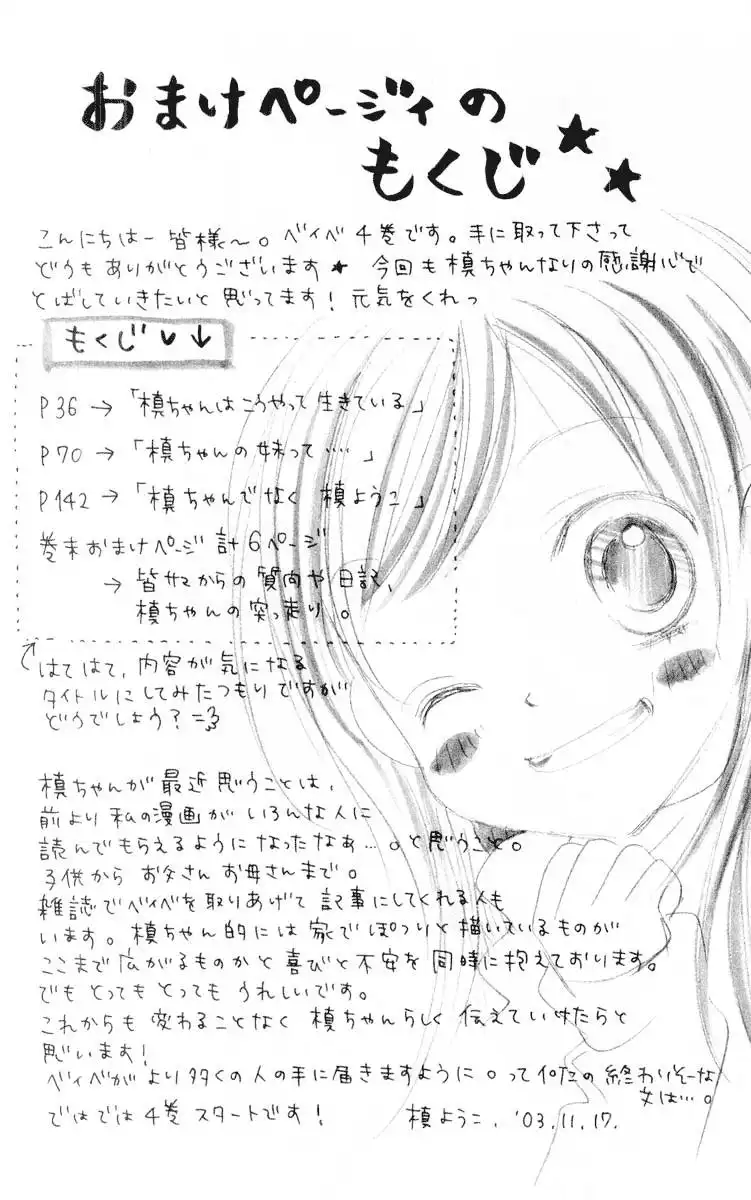 おまけページィの
もくじ★★
こんにちはー皆様〜。ベイベ4巻です。手に取って下さって
どうもありがとうございます★ 今回も槙ちゃんなりの感謝心で
とばしていきたいと思ってます！元気をくれっ
もくじ♥↓
P36→「槙ちゃんはこうやって生きている」
P70→「槙ちゃんの妹って……」
P142→「槙ちゃんでなく 槙ようこ」
巻末おまけページ 計6ページ
→皆サマからの質問や日記、
槙ちゃんの突っ走り。
はてはて、内容が気になる
タイトルにしてみたつもりですが
どうでしょう？
槙ちゃんが最近思うことは、
前より私の漫画がいろんな人に
読んでもらえるようになったなぁ…。と思うこと。
子供からお父さんお母さんまで。
雑誌でベイベを取りあげて記事にしてくれる人も
います。槙ちゃん的には家でぽつりと描いているものが
ここまで広がるものかと喜びと不安を同時に抱えております。
でもとってもとってもうれしいです。
これからも変わることなく槙ちゃんらしく伝えていけたらと
思います！
ベイベがより多くの人の手に届きますように。って何だこの終わりそーな
文は…。
ではでは4巻スタートです！ 槙ようこ、'03.11.17.